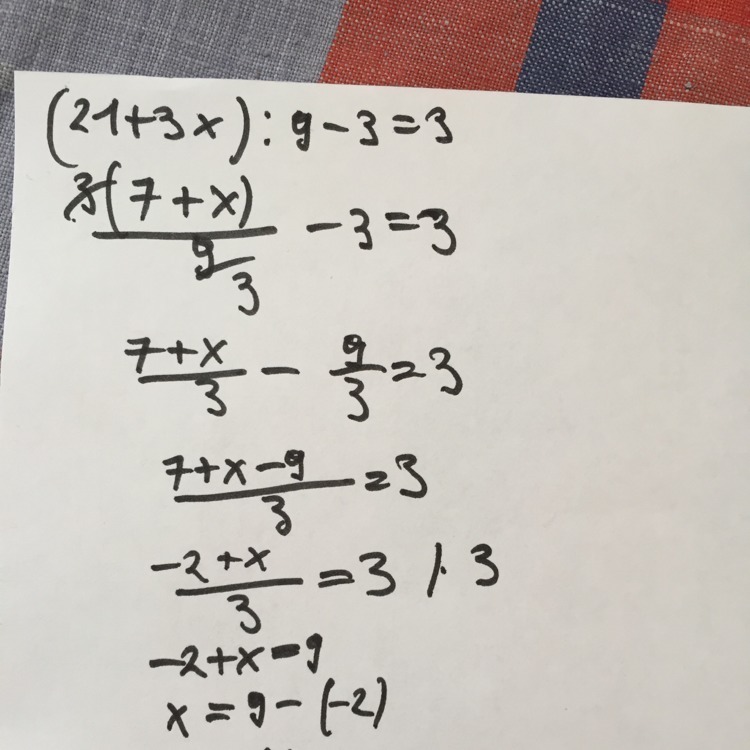 (21+3x):9-3=3
3(7+x)/9 3 -3=3
7+x/3 - 9/3=3
7+x-9/3=3
-2+x/3=3 /·3
-2+x=9
x=9-(-2)